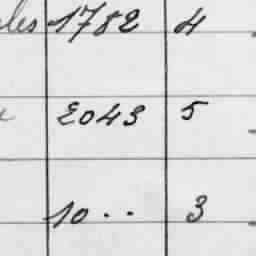 les 1782 4
2043 5
10 . . 3